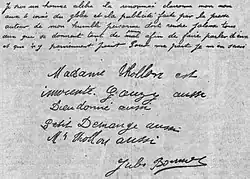 Je suis un homme célèbre. La renommée claironne mon nom
aux 4 coins du globe et la publicité faite par la presse
autour de mon humble personne doit rendre jaloux tous
ceux qui se donnent tant de mal afin de faire parler d'eux
et qui n'y parviennent point. Pour ma part je m'en serais
Madame Thollon est
innocente Gauzy aussi
Dieudonné aussi
Petit Demange aussi
Mr Thollon aussi
Jules Bonnot